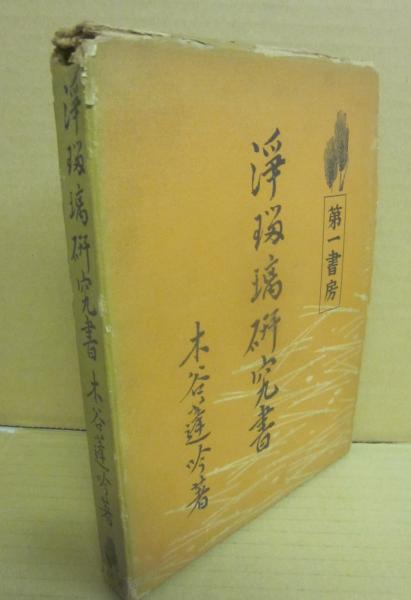 第一書房
淨瑠璃研究書
木谷蓬吟著
淨瑠璃研究書 木谷蓬吟著